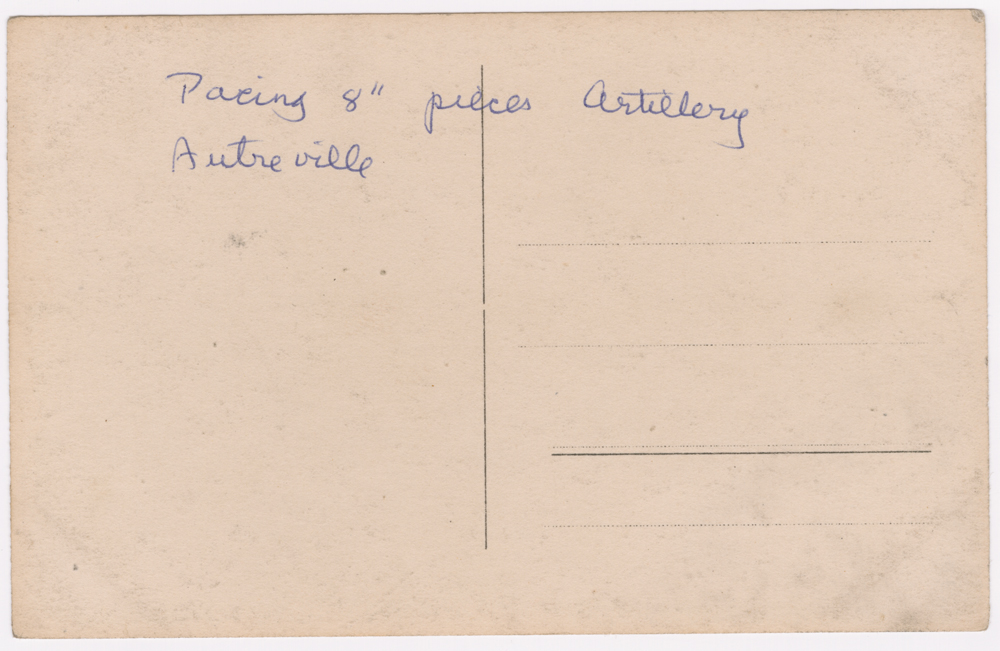 Pacing 8" pieces Artillery
Autreville